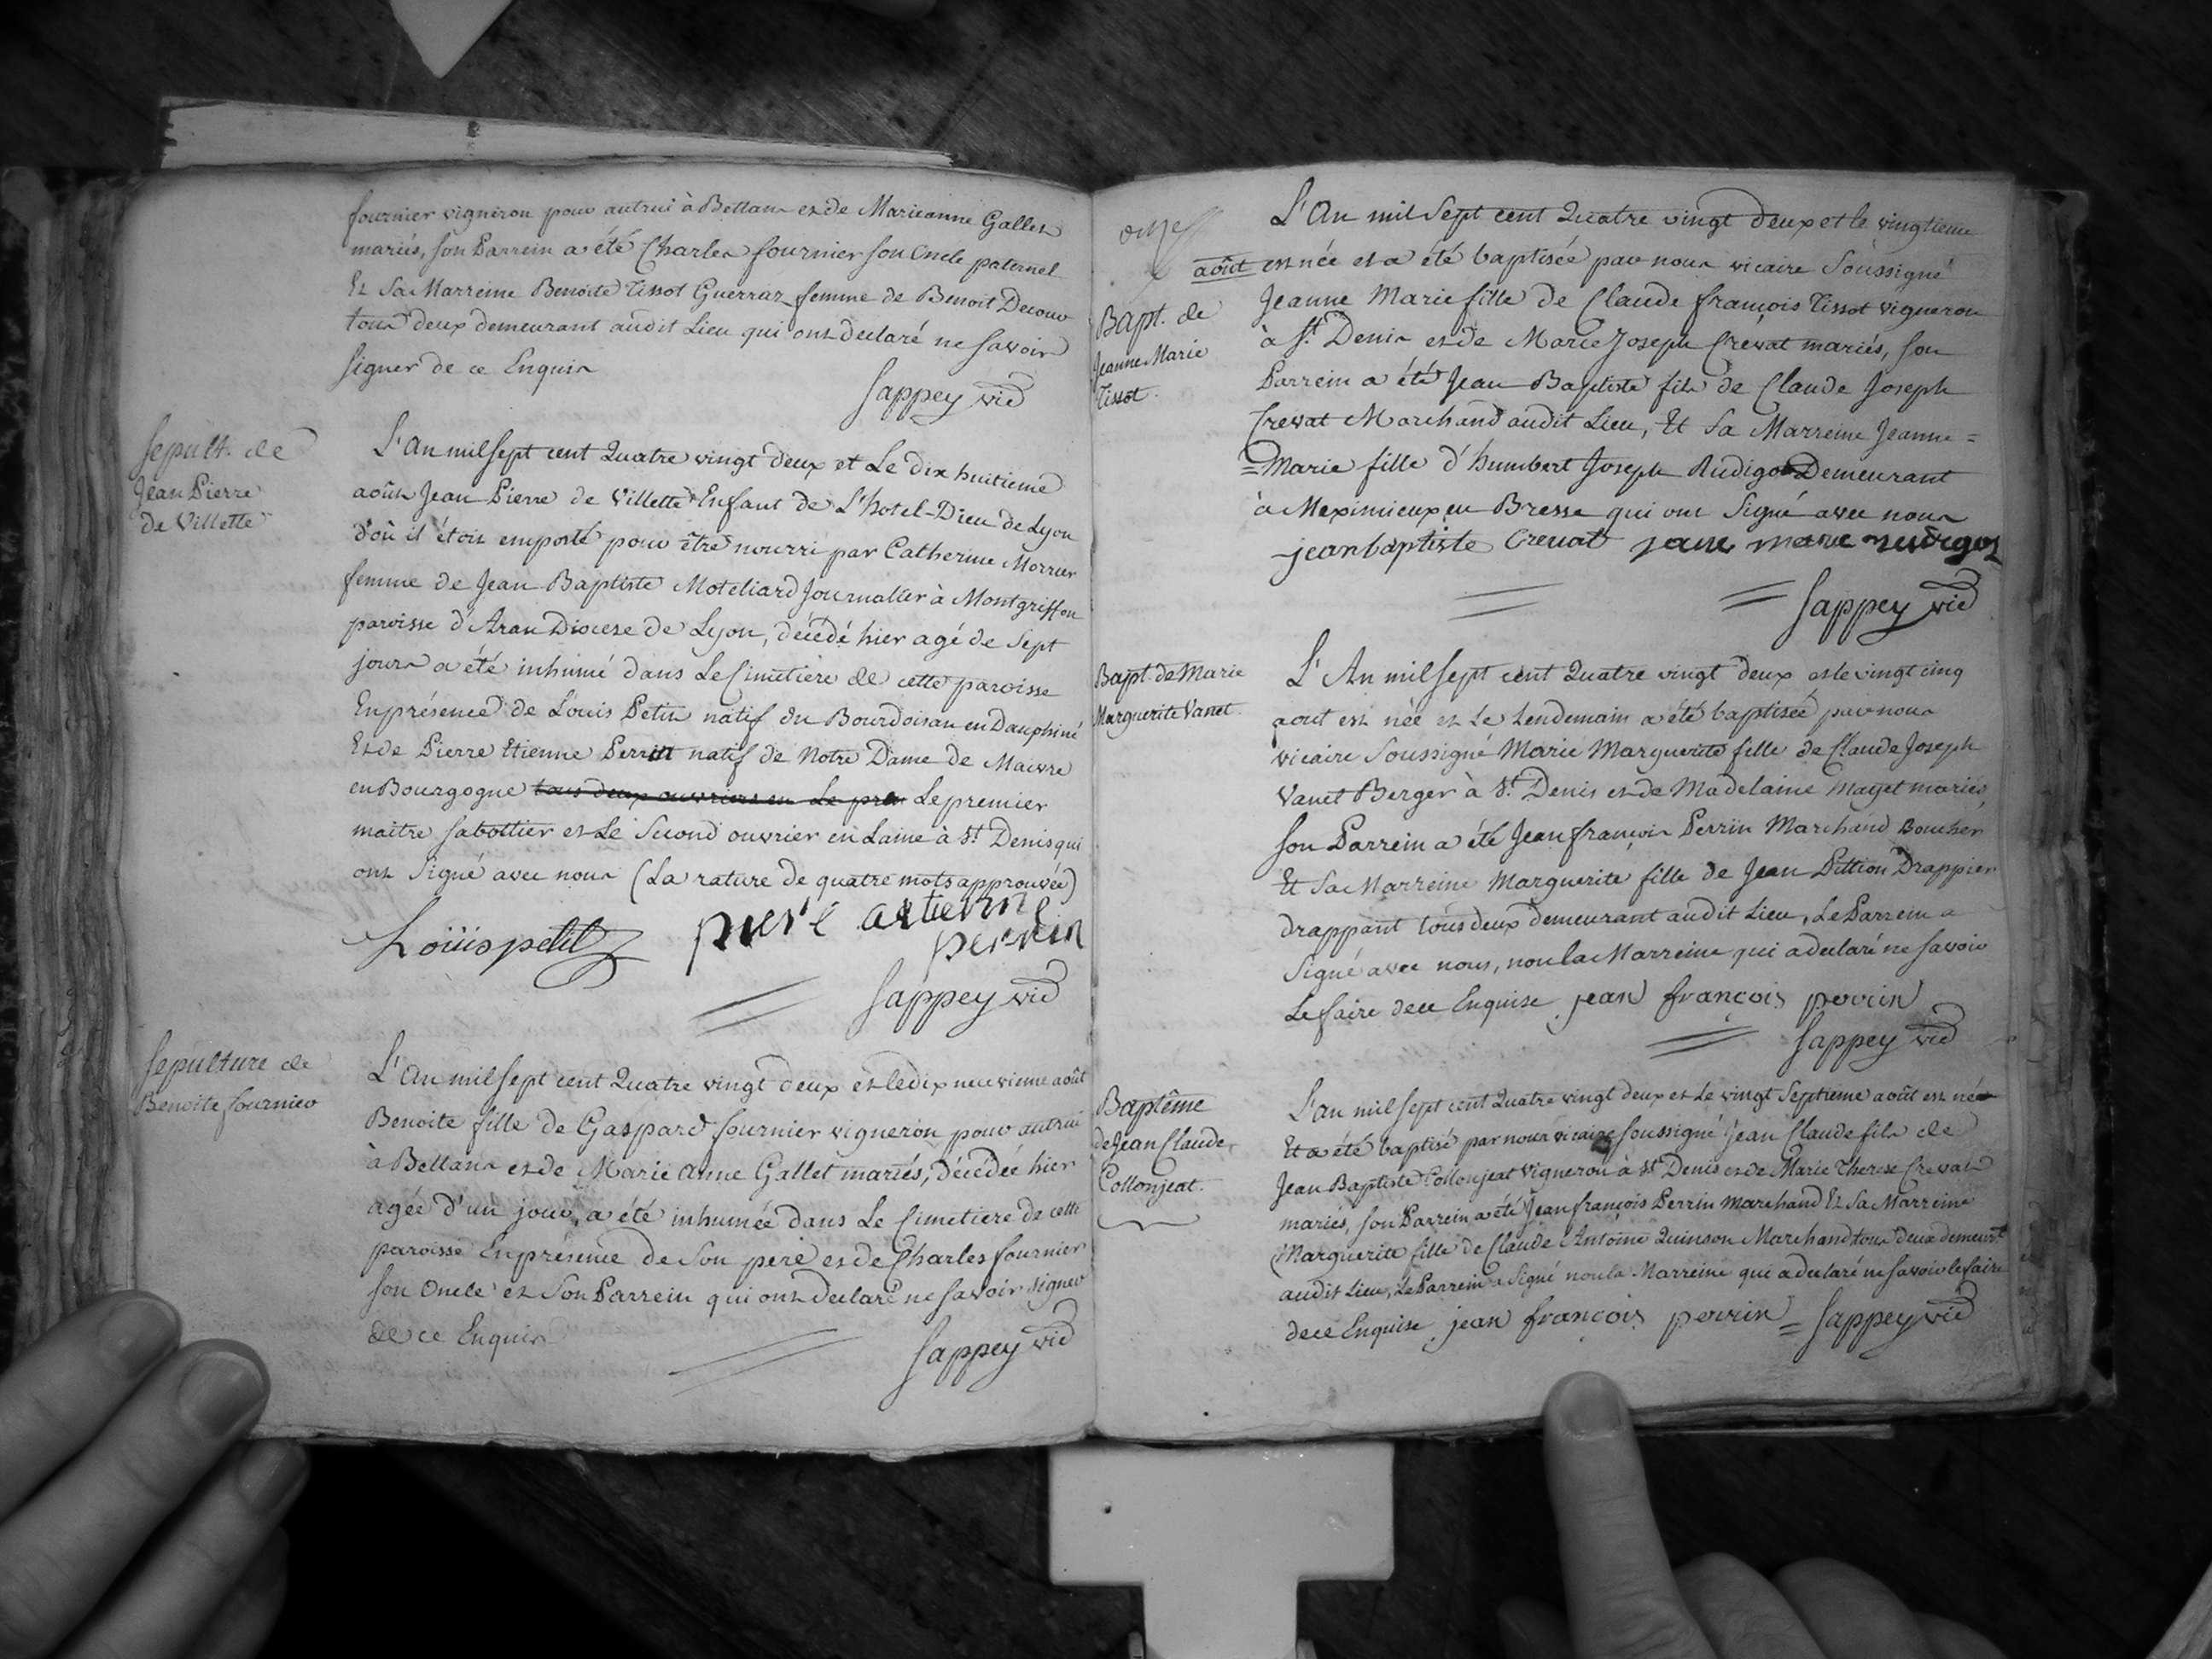 fournier vigneron pour autrui à Bettans et de Marieanne Gallet
mariés, son Parrein a été Charles fournier son Oncle paternel
Et Sa Marreine Benoite Tissot Guerraz femme de Benoit Decouv
tous deux demeurant audit Lieu qui ont declaré ne savoir
signer de ce Enquis
Sappey vic
Sepult. de
Jean Pierre
de Villette
L'An mil sept cent Quatre vingt deux et Le dix huitieme
août Jean Pierre de Villette Enfant de L'hotel-Dieu de Lyon
d'où il étoit emporté pour être nourri par Catherine Morrier
femme de Jean Baptiste Moteliard Journalier à Montgriffon
paroisse d'Aran Diocese de Lyon, décédé hier agé de sept
jours a été inhumé dans Le Cimetiere de cette paroisse
En présence de Louis Petit natif du Bourdoisan en Dauphiné
Et de Pierre Etienne Perrin natif de Notre Dame de Maivre
en Bourgogne tous deux ouvriers en Le pre Le premier
maitre sabottier et Le Second ouvrier en Laine à St. Denis qui
ont signé avec nous (La rature de quatre mots approuvée)
Loüis petit piere aetienne
perrein
Sappey vic
Sepulture de
Benoite fournier
L'an mil sept cent Quatre vingt deux et le dix neuvieme août
Benoite fille de Gaspard fournier vigneron pour autrui
à Bettans et de Marie Anne Gallet mariés, décédée hier
agée d'un jour, a été inhumée dans Le Cimetiere de cette
paroisse En présence de Son pere et de Charles fournier
son Oncle et Son Parrein qui ont declaré ne savoir signer
de ce Enquis
Sappey vic
Bapt. de
Jeanne Marie
Tissot.
L'An mil Sept cent Quatre vingt deux et le vingtieme
août est née et a été baptisée par nous vicaire Soussigné
Jeanne Marie fille de Claude françois Tissot vigneron
à St. Denis et de Marie Joseph Crévat mariés, son
Parrein a été Jean Baptiste fils de Claude Joseph
Crevat Marchand audit Lieu, Et Sa Marreine Jeanne=
=Marie fille d'humbert Joseph Rudigoz Demeurant
à Meximieux en Bresse qui ont Signé avec nous
jean baptiste Crevat jane marie rudigoz
Sappey vic
Bapt. de Marie
Marguerite Vanet.
L'An mil sept cent Quatre vingt deux et le vingt cinq
aout est née et Le Lendemain a été baptisée par nous
vicaire Soussigné Marie Marguerite fille de Claude Joseph
Vanet Berger à St. Denis et de Madelaine Mayet mariés,
son Parrein a été Jean françois Perrin Marchand Boucher
Et Sa Marreine Marguerite fille de Jean Pittion Drappier
drappant tous deux demeurant audit Lieu, Le Parrein a
Signé avec nous, non la Marreine qui a declaré ne savoir
Le faire de ce Enquise jean françois perrin
Sappey vic
Baptême
de Jean Claude
Collonjeat.
L'an mil sept cent Quatre vingt deux et Le vingt Septieme août est né
Et a été baptisé par nous vicaire soussigné Jean Claude fils de
Jean Baptiste Collonjeat vigneron à St. Denis et de Marie Therese Crevat
mariés, son Parrein a été Jean françois Perrin Marchand Et Sa Marreine
Marguerite fille de Claude Antoine Quinson Marchand tous deux demeurt
audit Lieu, Le Parrein a Signé non la Marreine qui a declaré ne savoir le faire
de ce Enquise jean françois perrin = Sappey vic